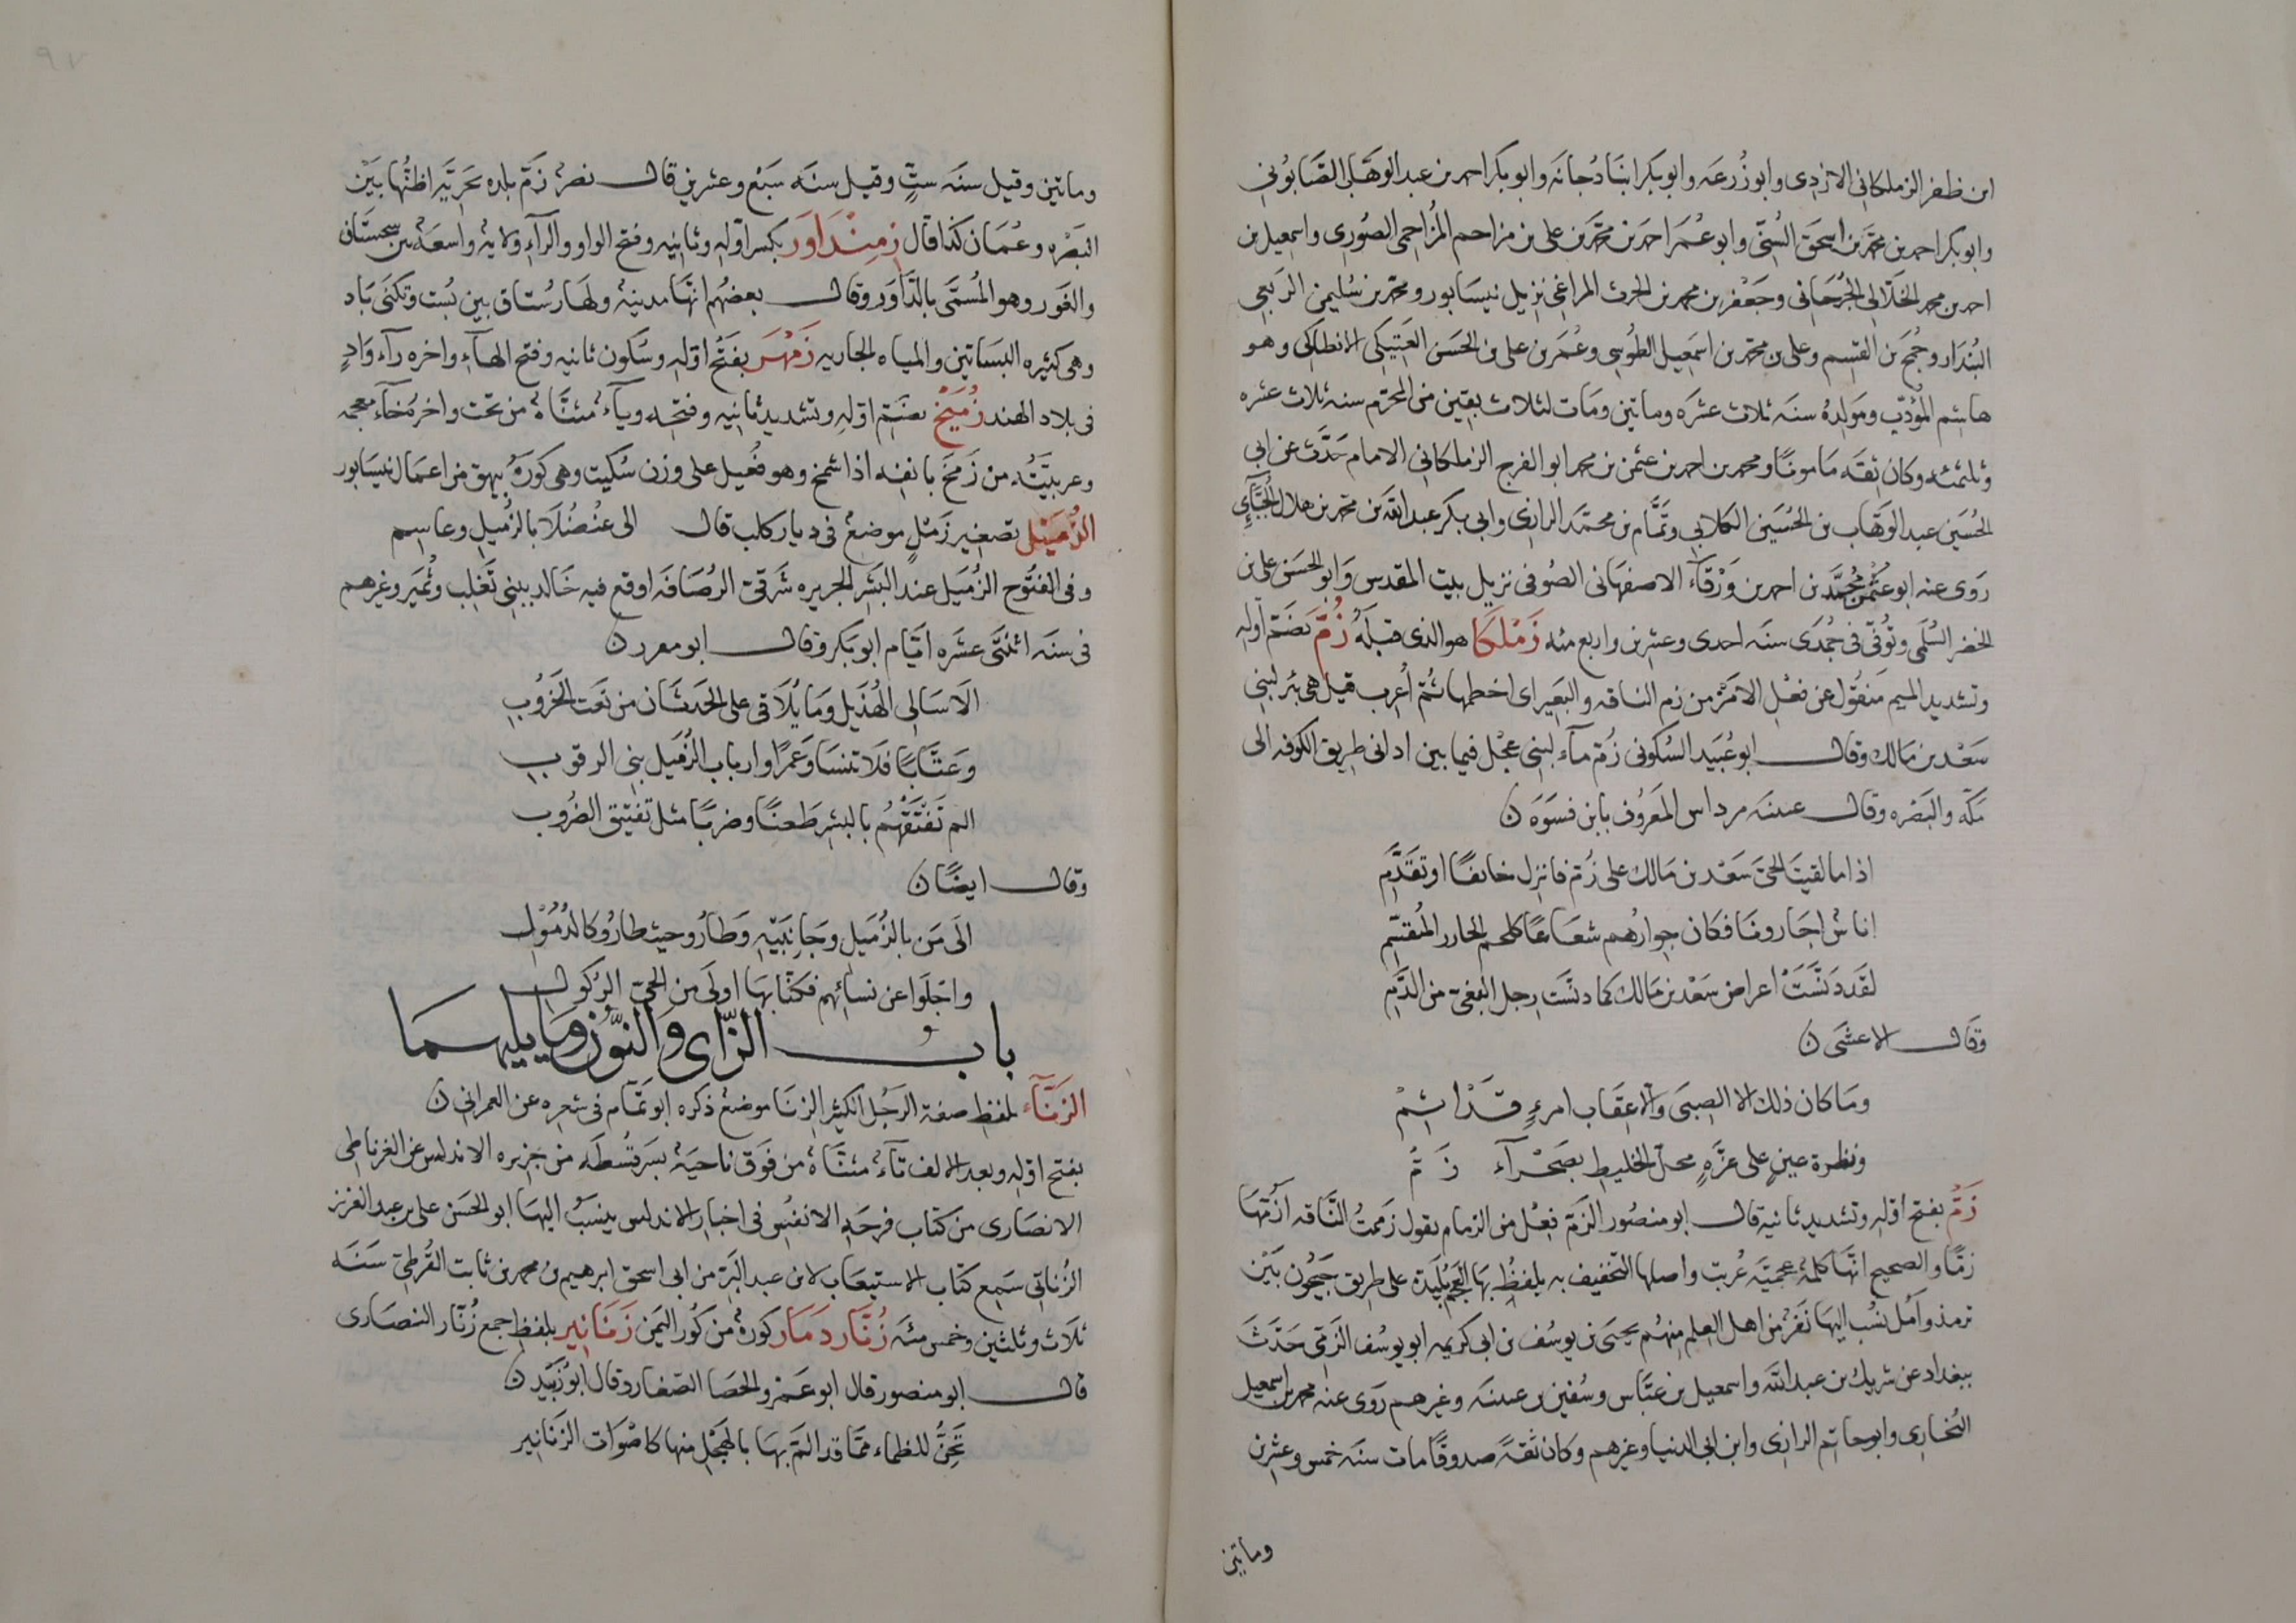 ابن ظفر الزملكانى الازدى وابو زُرعَه وابو بكر ابنا دُجانَه وابو بكر احمد بن عبد الوهَّاب الصَّابُونى
وابو بكر احمد بن محمد بن اسحق السُنّى وابو عُمَر احمد بن محمد بن على بن مزاحم المُزاحمى الصُورى واسمعيل بن
احمد بن محمد الخلالى الجُرجانى وجَعْفر بن محمد بن الحرث المراغى نزيل نيسَابور ومحمد بن سُليمن الرَبعى
البُندَار وجُمح بن القسم وعلى بن محمد بن اسمعيل الطُوسى وعُمَر بن على بن الحسَن العَتيكى الانطاكى وهو
هاشم المؤدّب ومَولدهُ سنَه ثلاث عشرَه وماتين ومَات لثلاث بقين من المحرّم سنه ثلاث عشره
وثلثمئه وكان ثقَه مَامونًا ومحمد بن احمد بن عثمن بن محمد ابو الفرج الزملكانى الامام حَدَّث عن ابى
الحُسَين عبد الوَهّاب بن الحُسَين الكلابى وتَمَّام بن محمّد الرازى وابى بكر عبد الله بن محمد بن هلال الجُبَّآئى
رَوى عنه ابو عثمن محمّد بن احمد بن وَرْقَآء الاصفهانى الصُوفى نزيل بيت المقدس وَابو الحسَن على بن
الخضر السُلَمى وتُوُفّى فى جُمدَى سنَه احدى وعشرين واربع مئه زَمْلكَا هو الذى قبلَهُ زُمَّ بضَمّ اوله
وتشديد الميم مَنقُول عن فعْل الامْر من زم الناقه والبَعير اى اخطمها ثُمّ اُعرب قيل هى بئر لبنى
سَعْد بن مَالك وقال ابو عُبَيد السُكونى زُمّ مآء لبنى عجْل فيما بين ادانى طريق الكوفه الى
مَكّه والبَصْره وقال عيينَه مرداس المَعرُوف بابن فسوَه ن
اذا ما لقيتَ الحىّ سَعْد بن مَالك على زُمّ فانزل خائفًا او تقَدَّمِ
اناسٌ اجَارونَا فكان جوارُهم شعَاعًا كلحم الجازر المُقَسّمِ
لقَد دَنَّسَتْ اعراض سَعْد بن مَالك كما دنسَت رجل البغىّ من الدَّمِ
وقال الاعشَى ن
ومَا كان ذلك الا الصبَى والا عقَاب امرءٍ قَدْ اثِمْ
ونظرة عينٍ على غرَّهٍ محلّ الخليط بصَحْرآء زَ مُّ
زَمُّ بفتح اوّلهِ وتشديد ثانيهِ قال ابو منصُور الزَمّ فعْل من الزمام يقول زممتُ النَّاقه ازُمّهَا
زمًّا والصحيح انّهَا كلمةٌ عجميّه عُربت واصلها التخفيف به يلفظُ بهَا العَجمُ بُليدة على طريق جَيحُون بَيْن
ترمذ وآمُل نسُب اليهَا نَفَرٌ من اهل العِلم منهُم يحيَى بن يوسُف بن ابى كريمه ابو يوسُف الزَمّى حَدَّثَ
ببغداد عن شريك بن عبد الله واسمعيل بن عيَّاس وسُفين بن عيينَه وغيرهم رَوى عنه محمد بن اسمعيل
البُخارى وابو حاتم الرازى وابن ابى الدنيا وغيرهم وكان ثقةً صدوقًا مات سنَه خمس وعشرين
وماتين
٩٧
وماتين وقيل سنه ستٍّ وقيل سنَه سَبْع وعشرين قال نصرٌ زَمّ بلده بَحريَّه اظنّها بَيْن
البَصْره وعُمَان كذا قال زِمِنْدَاوَر بكسر اوّلهِ وثانيه وفتح الواو والرَآء ولايةٌ واسعَهٌ بين سجستَان
والغَور وهو المُسَمَّى بالدّاوَر وقال بعضهُم انّهَا مدينةٌ ولهَا رُستاق بين بُست وتكنَى بَاد
وهى كثيره البسَاتين والميَاه الجاريه زَمْهَر بفَتْح اوّلهِ وسُكون ثانيه وفتح الهآء واخره رآء وَادٍ
فى بلاد الهند زُمَّيْخ بضَمّ اوّلهِ وتشديد ثانيه وفتحه ويآءٌ مثنَّاةٌ من تحت واخرهُ خآء معجمه
وعربيّتُهُ من زَمخَ بانفه اذا شمخ وهو فُعيل على وزن سُكيت وهى كورَةُ بيهق من اعمَال نيسَابور
الزُمَيْل تصغير زَمْلٍ موضعٌ فى ديار كلب قال الى عنْصُلَا بالزُميل وعاسم
وفى الفتُوح الزُمَيل عند البَشْر بالجزيره شَرقىّ الرُصَافَه اوقع فيه خَالد ببنى تَغلِب ونُمَير وغيرهم
فى سنَه اثنتَى عشَره ايَّام ابو بَكر وقال ابو مقرر ن
الَا سَالى الهُذَيل ومَا يُلَاقى على الحَدثَان من نَعت الحَرُوبِ
وَعتَّابًا فلَا تنسَا وعَمرًا وارباب الزُمَيل بنى الرقوبِ
الم نَفْتَقْهُم بالبشر طَعنًا وضربًا مثل تفتيق الضُروب
وقال ايضًا ن
الَى مَن بالزُمَيل وجَانبَيهِ وَطَارُو حيث طارُو كالدُمُولِ
واجَلَوا عن نسَائهم فكنّا بهَا اولَى من الحىّ الرَكُول
بابُ الزّاى والنوُّن ومَا يليهمَا
الزَنَّآء بلفظِ صفة الرجُل الكثير الزنَا موضعٌ ذكره ابو تَمَّام فى شعره عن العمرانى ن
بفتح اوّلهِ وبعد الالف تآءٌ مثنَّاةٌ من فَوق ناحيَةٌ بسَرقُسْطَه من جَزيره الاندلس عن الغرناطى
الانصَارى من كتاب فرحَهِ الانفُس فى اخبار الاندلس ينسَبُ اليهَا ابو الحسَن على بن عبد العزيز
الزُناتى سَمِع كتاب الاستيعَاب لابن عبد البَرّ من ابى اسحق ابرهيم بن محمد بن ثابت القُرطبى سَنَه
ثلَاث وثلثين وخمس مئه زُنَّار دَمَار كورةٌ من كُوَر اليَمن زَنَانير بلفظِ جمع زُنّار النصَارى
قال ابو منصور قال ابو عَمرو الحصَا الصّغار وقال ابو زُبَيْد ن
تَحِنُّ للظماء ممّا قد المّ بهَا بالهَجْل منها كاصْوَات الزَنَانير